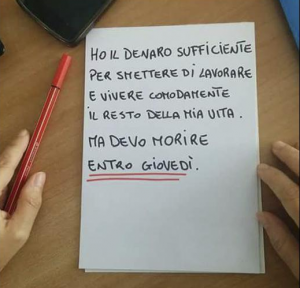 HO IL DENARO SUFFICIENTE
PER SMETTERE DI LAVORARE
E VIVERE COMODAMENTE
IL RESTO DELLA MIA VITA.
MA DEVO MORIRE
ENTRO GIOVEDÌ.